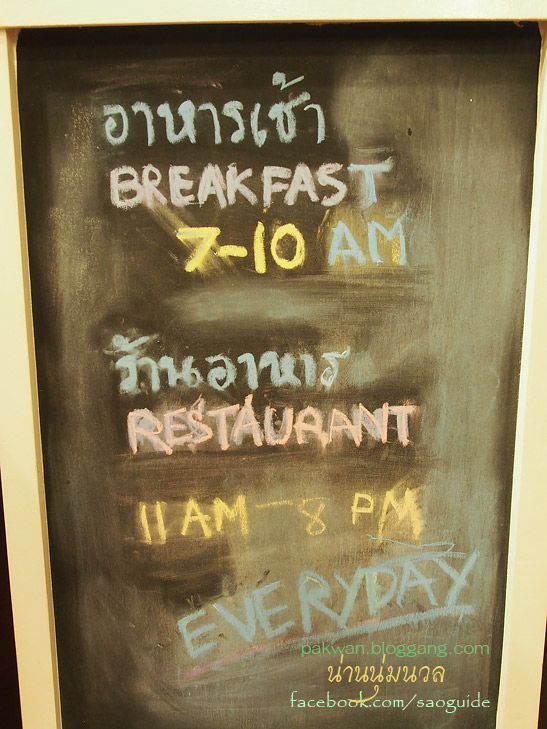 อาหารเช้า
BREAKFAST
7-10 AM
ร้านอาหาร
RESTAURANT
11 AM - 8 PM
EVERYDAY
pakwan.bloggang.com
น่านนุ่มนวล
facebook.com/saoguide